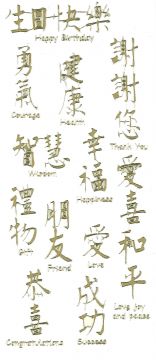 生日快樂
Happy Birthday
勇氣
Courage
健康
Health
謝謝您
Thank You
智慧
Wisdom
幸福
Happiness
愛喜和平
Love joy
and peace
禮物
Gift
朋友
Friend
愛
Love
恭喜
Congratulations
成功
Success